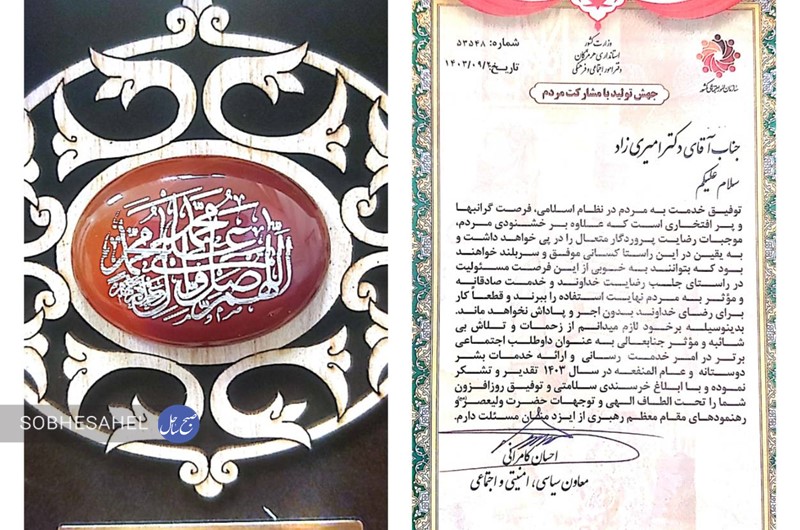 اللهم صل علی محمد و آل محمد
SOBHESAHEL صبح ساحل
وزارت کشور
استانداری هرمزگان
دفتر امور اجتماعی و فرهنگی
شماره: ۵۳۵۴۸
تاریخ: ۱۴۰۳/۰۹/۲
سازمان امور اجتماعی کشور
جهش تولید با مشارکت مردم
جناب آقای دکتر امیری زاد
سلام علیکم
توفیق خدمت به مردم در نظام اسلامی، فرصت گرانبها
و پر افتخاری است که علاوه بر خشنودی مردم،
موجبات رضایت پروردگار متعال را در پی خواهد داشت و
به یقین در این راستا کسانی موفق و سربلند خواهند
بود که بتوانند به خوبی از این فرصت مسئولیت
در راستای جلب رضایت خداوند و خدمت صادقانه
و مؤثر به مردم نهایت استفاده را ببرند و قطعاً کار
برای رضای خداوند بدون اجر و پاداش نخواهد ماند.
بدینوسیله برخود لازم میدانم از زحمات و تلاش بی
شائبه و مؤثر جنابعالی به عنوان داوطلب اجتماعی
برتر در امر خدمت رسانی و ارائه خدمات بشر
دوستانه و عام المنفعه در سال ۱۴۰۳ تقدیر و تشکر
نموده و با ابلاغ خرسندی سلامتی و توفیق روزافزون
شما را تحت الطاف الهی و توجهات حضرت ولیعصر و
رهنمودهای مقام معظم رهبری از ایزد منان مسئلت دارم.
احسان کامرانی
معاون سیاسی، امنیتی و اجتماعی